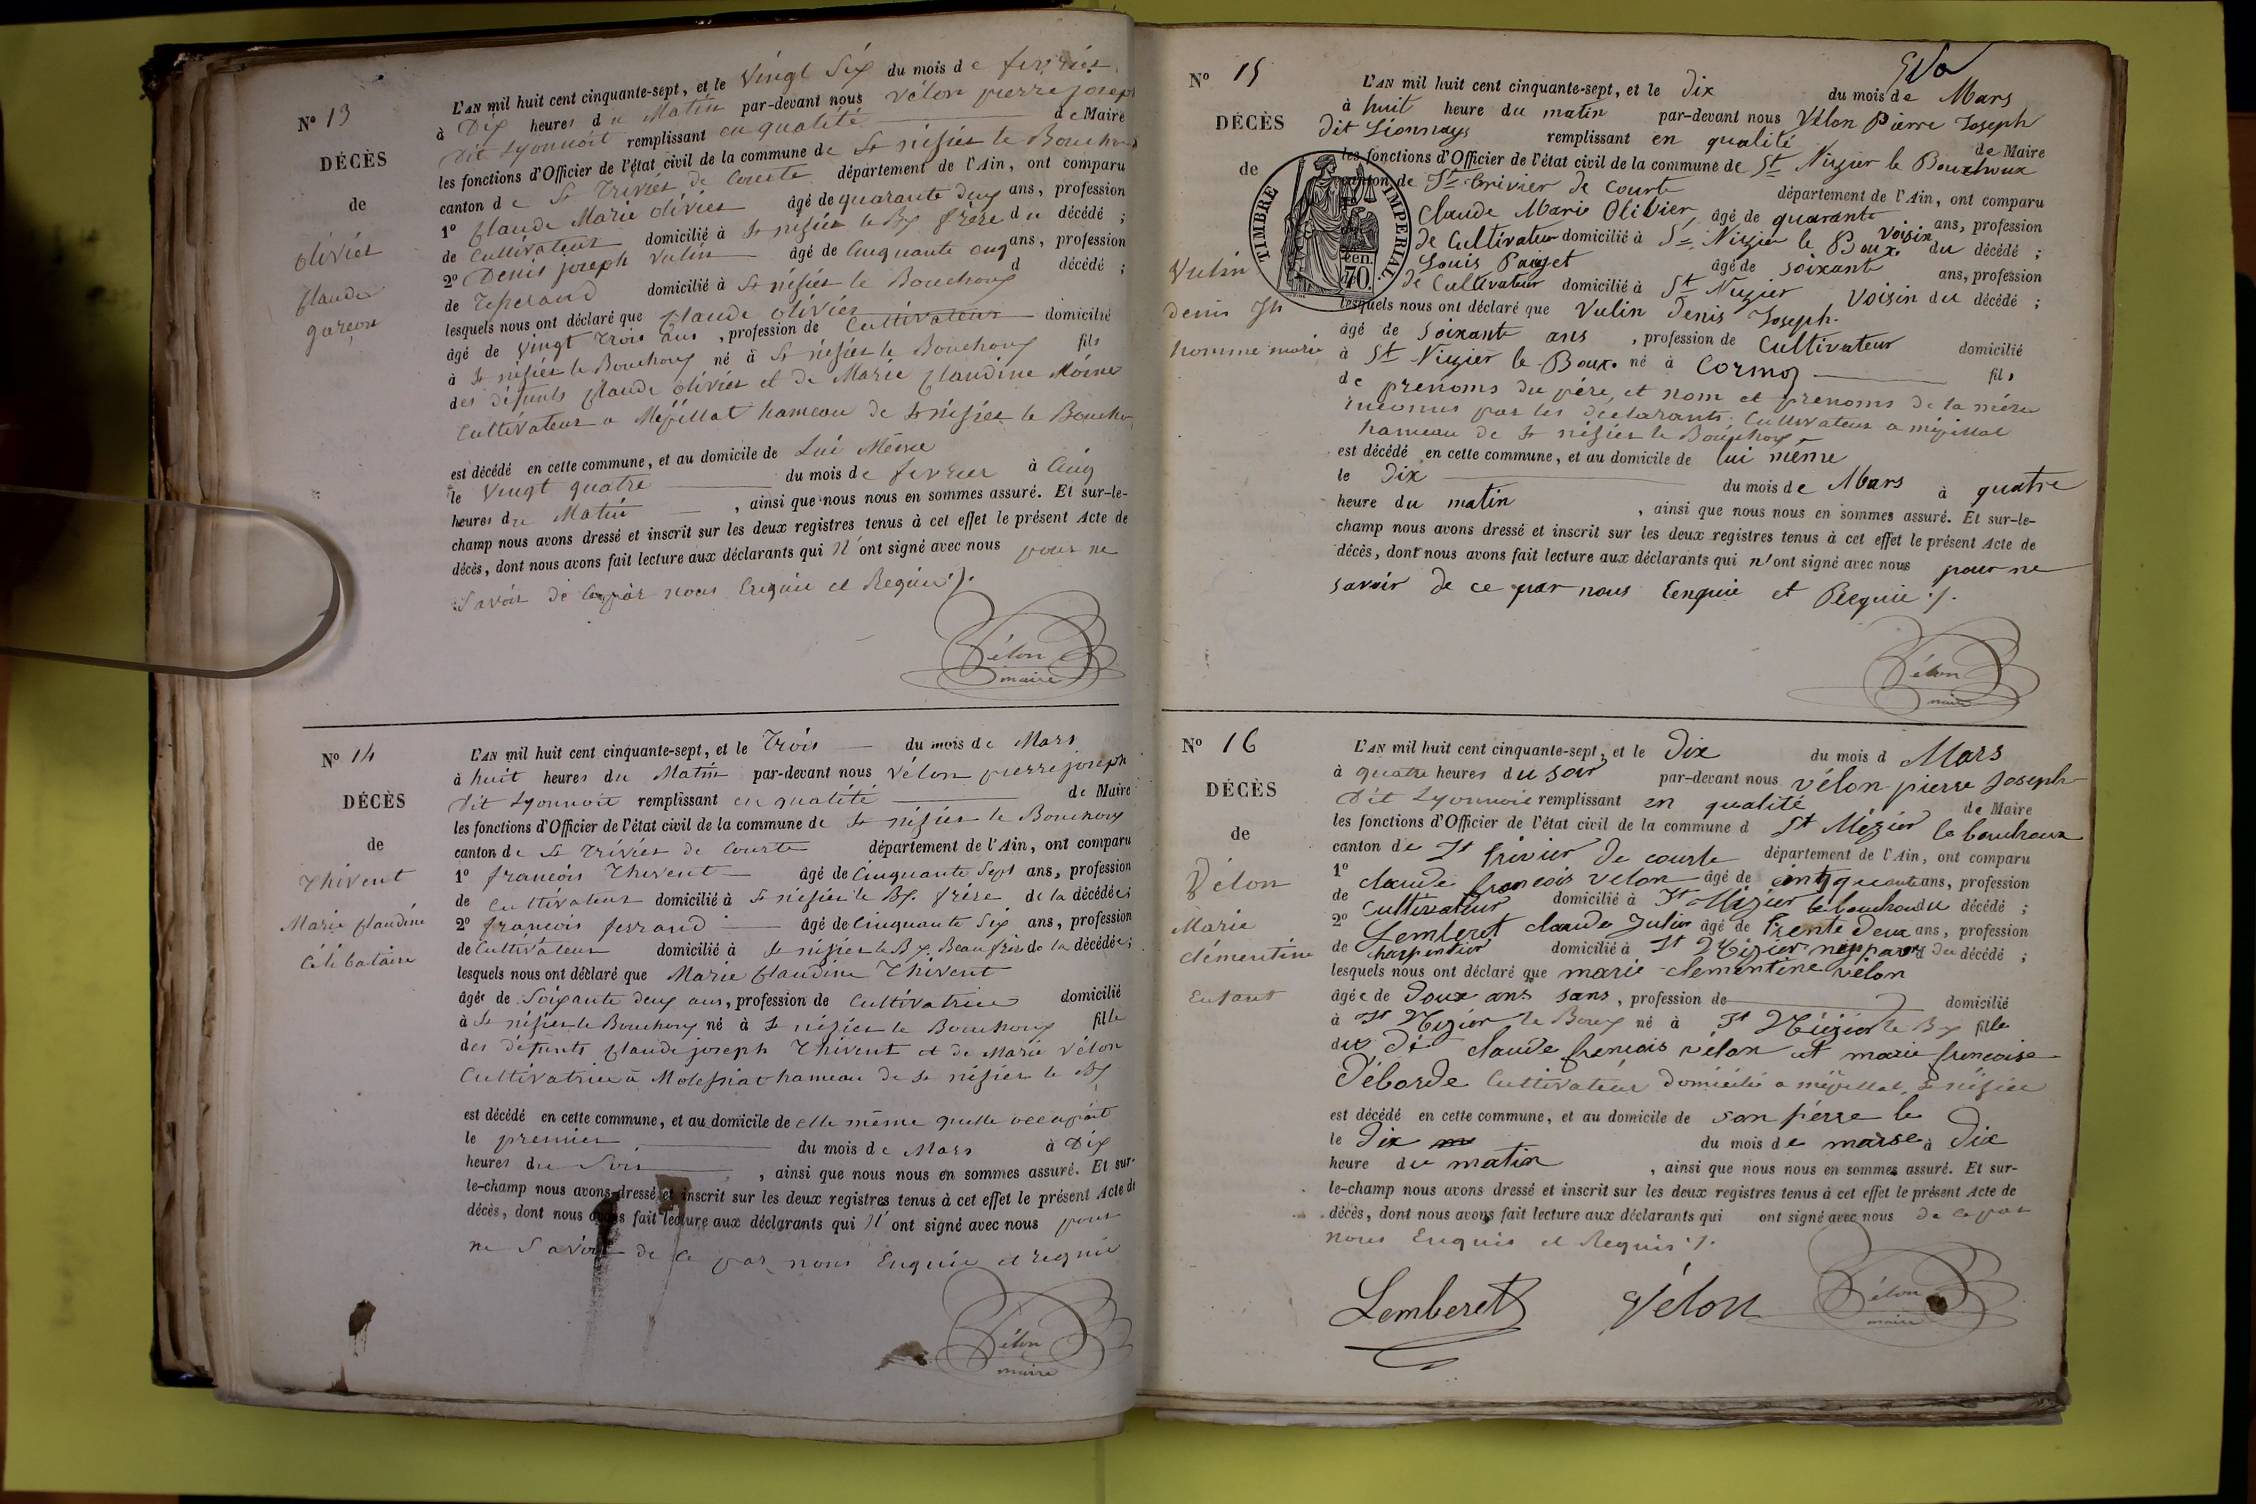 N° 13
DÉCÈS
de
olivier
Claude
garçon
L'AN mil huit cent cinquante-sept, et le Vingt Six du mois de fevrier
à Dix heures du Matin par-devant nous Vélon pierre joseph
dit Lyonnoit remplissant en qualité de Maire
les fonctions d'Officier de l'état civil de la commune de St nisier le Bouchoux
canton de St Trivier de Courte département de l'Ain, ont comparu
1° Claude Marie olivier âgé de quarante deux ans, profession
de Cultivateur domicilié à St nisier le Bx frère du décédé ;
2° Denis joseph Vulin âgé de Cinquante cinq ans, profession
de domicilié à St nisier le Bouchoux d décédé ;
lesquels nous ont déclaré que Claude olivier
âgé de Vingt trois ans, profession de Cultivateur domicilié
à St nisier le Bouchoux né à St nisier le Bouchoux fils
des défunts Claude olivier et de Marie Claudine Moine
Cultivateur a Mépillat hameau de St nisier le Bouchoux
est décédé en cette commune, et au domicile de Lui Même
le Vingt quatre du mois de fevrier à Cinq
heures du Matin , ainsi que nous nous en sommes assuré. Et sur-le-
champ nous avons dressé et inscrit sur les deux registres tenus à cet effet le présent Acte de
décès, dont nous avons fait lecture aux déclarants qui N'ont signé avec nous pour ne
Savoir de ce par nous Enquis et Requis ./.
Vélon
maire
N° 14
DÉCÈS
de
Thivent
Marie Claudine
Célibataire
L'AN mil huit cent cinquante-sept, et le Trois du mois de Mars
à huit heures du Matin par-devant nous Vélon pierre joseph
dit Lyonnoit remplissant en qualité de Maire
les fonctions d'Officier de l'état civil de la commune de St nisier le Bouchoux
canton de St Trivier de Courte département de l'Ain, ont comparu
1° francois Thivent âgé de Cinquante Sept ans, profession
de Cultivateur domicilié à St nisier le Bx. frère de la décédée ;
2° francois ferrand âgé de Cinquante Six ans, profession
de Cultivateur domicilié à St nisier le Bx. Beau frère de la décédée ;
lesquels nous ont déclaré que Marie Claudine Thivent
âgée de Soixante deux ans, profession de Cultivatrice domicilié
à St nisier le Bouchoux né à St nisier le Bouchoux fille
des défunts Claude joseph Thivent et de Marie Vélon
Cultivatrice à hameau de St nisier le Bx
est décédé en cette commune, et au domicile de elle même quelle occupoit
le premier du mois de Mars à Dix
heures du Soir , ainsi que nous nous en sommes assuré. Et sur-
le-champ nous avons dressé et inscrit sur les deux registres tenus à cet effet le présent Acte de
décès, dont nous avons fait lecture aux déclarants qui N'ont signé avec nous pour
ne Savoir de ce par nous Enquis et requis
Vélon
maire
N° 15
DÉCÈS
de
Vulin
denis Jh
homme marié
TIMBRE IMPERIAL.
cen.
70.
L'AN mil huit cent cinquante-sept, et le dix du mois de Mars
à huit heure du matin par-devant nous Vélon Pierre Joseph
dit Lionnays remplissant en qualité de Maire
les fonctions d'Officier de l'état civil de la commune de St Nizier le Bouchoux
canton de St trivier de Courte département de l'Ain, ont comparu
Claude Marie Olivier, âgé de quarante ans, profession
de Cultivateur domicilié à St Nizier le Boux. Voisin du décédé ;
Louis Pauget âgé de soixante ans, profession
de Cultivateur domicilié à St Nizier, Voisin du décédé ;
lesquels nous ont déclaré que Vulin Denis Joseph.
âgé de soixante ans , profession de Cultivateur domicilié
à St Nizier le Boux. né à Cormoz fils
de prenoms du père, et nom et prenoms de la mére
inconnus par les declarants, Cultivateur a mépillat
hameau de St nisier le Bouchoux
est décédé en cette commune, et au domicile de lui même
le Dix du mois de Mars à quatre
heure du matin , ainsi que nous nous en sommes assuré. Et sur-le-
champ nous avons dressé et inscrit sur les deux registres tenus à cet effet le présent Acte de
décès, dont nous avons fait lecture aux déclarants qui n'ont signé avec nous pour ne
savoir de ce par nous Enquie et Requie ./.
Vélon
maire
N° 16
DÉCÈS
de
Vélon
Marie
clémentine
Enfant
L'AN mil huit cent cinquante-sept, et le Dix du mois d Mars
à quatre heures du soir par-devant nous Vélon pierre Joseph
dit Lyonnoie remplissant en qualité de Maire
les fonctions d'Officier de l'état civil de la commune d St Nizier le bouchoux
canton de St trivier de courte département de l'Ain, ont comparu
1° claude francois velon âgé de cintquante ans, profession
de cultivateur domicilié à St Nizier le bouchou du décédé ;
2° Lemberet claude Julien âgé de trente deux ans, profession
de charpentier domicilié à St Nizier du décédé ;
lesquels nous ont déclaré que marie clementine vélon
âgée de Doux ans sans, profession de domicilié
à St Nizier le Boux né à St Nizier le Bx fille
du Dé claude francois velon et marie francoise
Déborde Cultivateur domicilié a mépillat St nisier
est décédé en cette commune, et au domicile de son pérre le
le dix du mois de marse à dix
heure du matin , ainsi que nous nous en sommes assuré. Et sur-
le-champ nous avons dressé et inscrit sur les deux registres tenus à cet effet le présent Acte de
décès, dont nous avons fait lecture aux déclarants qui ont signé avec nous de ce par
nous Enquis et Requis ./.
Lemberet Vélon Vélon
maire